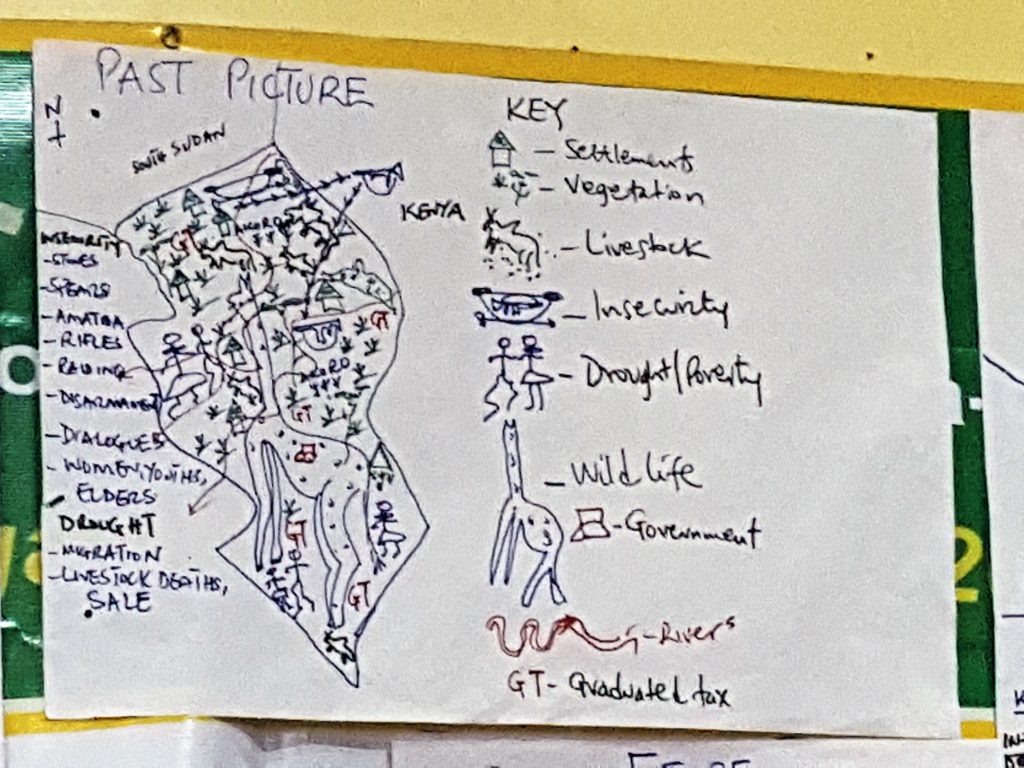 PAST PICTURE
N
SOUTH SUDAN
KENYA
GT
GT
GT
GT
GT
INSECURITY
- SPEARS
- AMATIDA
- RIFLES
- RAIDING
- DISARMAMENT
- DIALOGUES
- WOMEN, YOUTHS,
ELDERS
DROUGHT
- MIGRATION
- LIVESTOCK DEATHS,
SALE
KEY
- Settlements
- Vegetation
- Livestock
- Insecurity
- Drought/Poverty
- Wild life
- Government
- Rivers
GT - Graduated tax
2